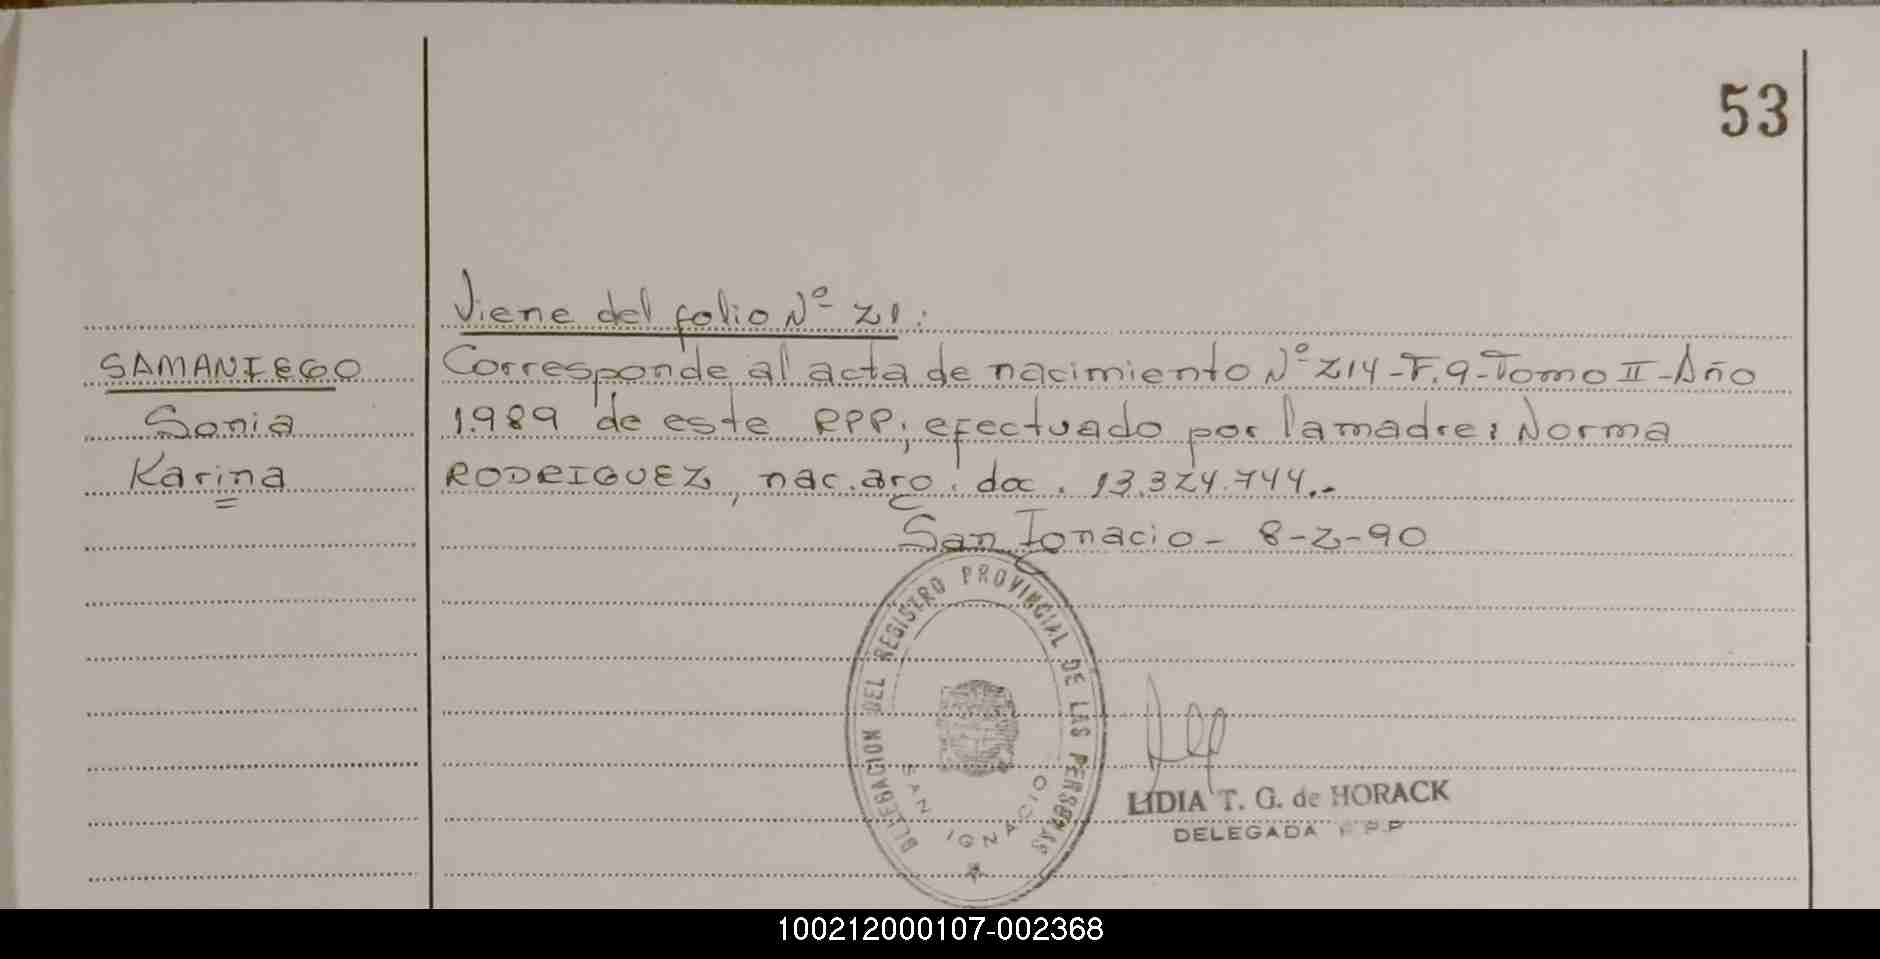 53
Viene del folio Nº 21:
SAMANIEGO
Sonia
Karina
Corresponde al acta de nacimiento Nº 214-F.9-Tomo II-Año
1.989 de este RPP, efectuado por la madre: Norma
RODRIGUEZ, nac. arg. doc. 13.324.744.-
San Ignacio - 8-2-90
DELEGACION DEL REGISTRO PROVINCIAL DE LAS PERSONAS
SAN IGNACIO
LIDIA T. G. de HORACK
DELEGADA R P P
100212000107-002368